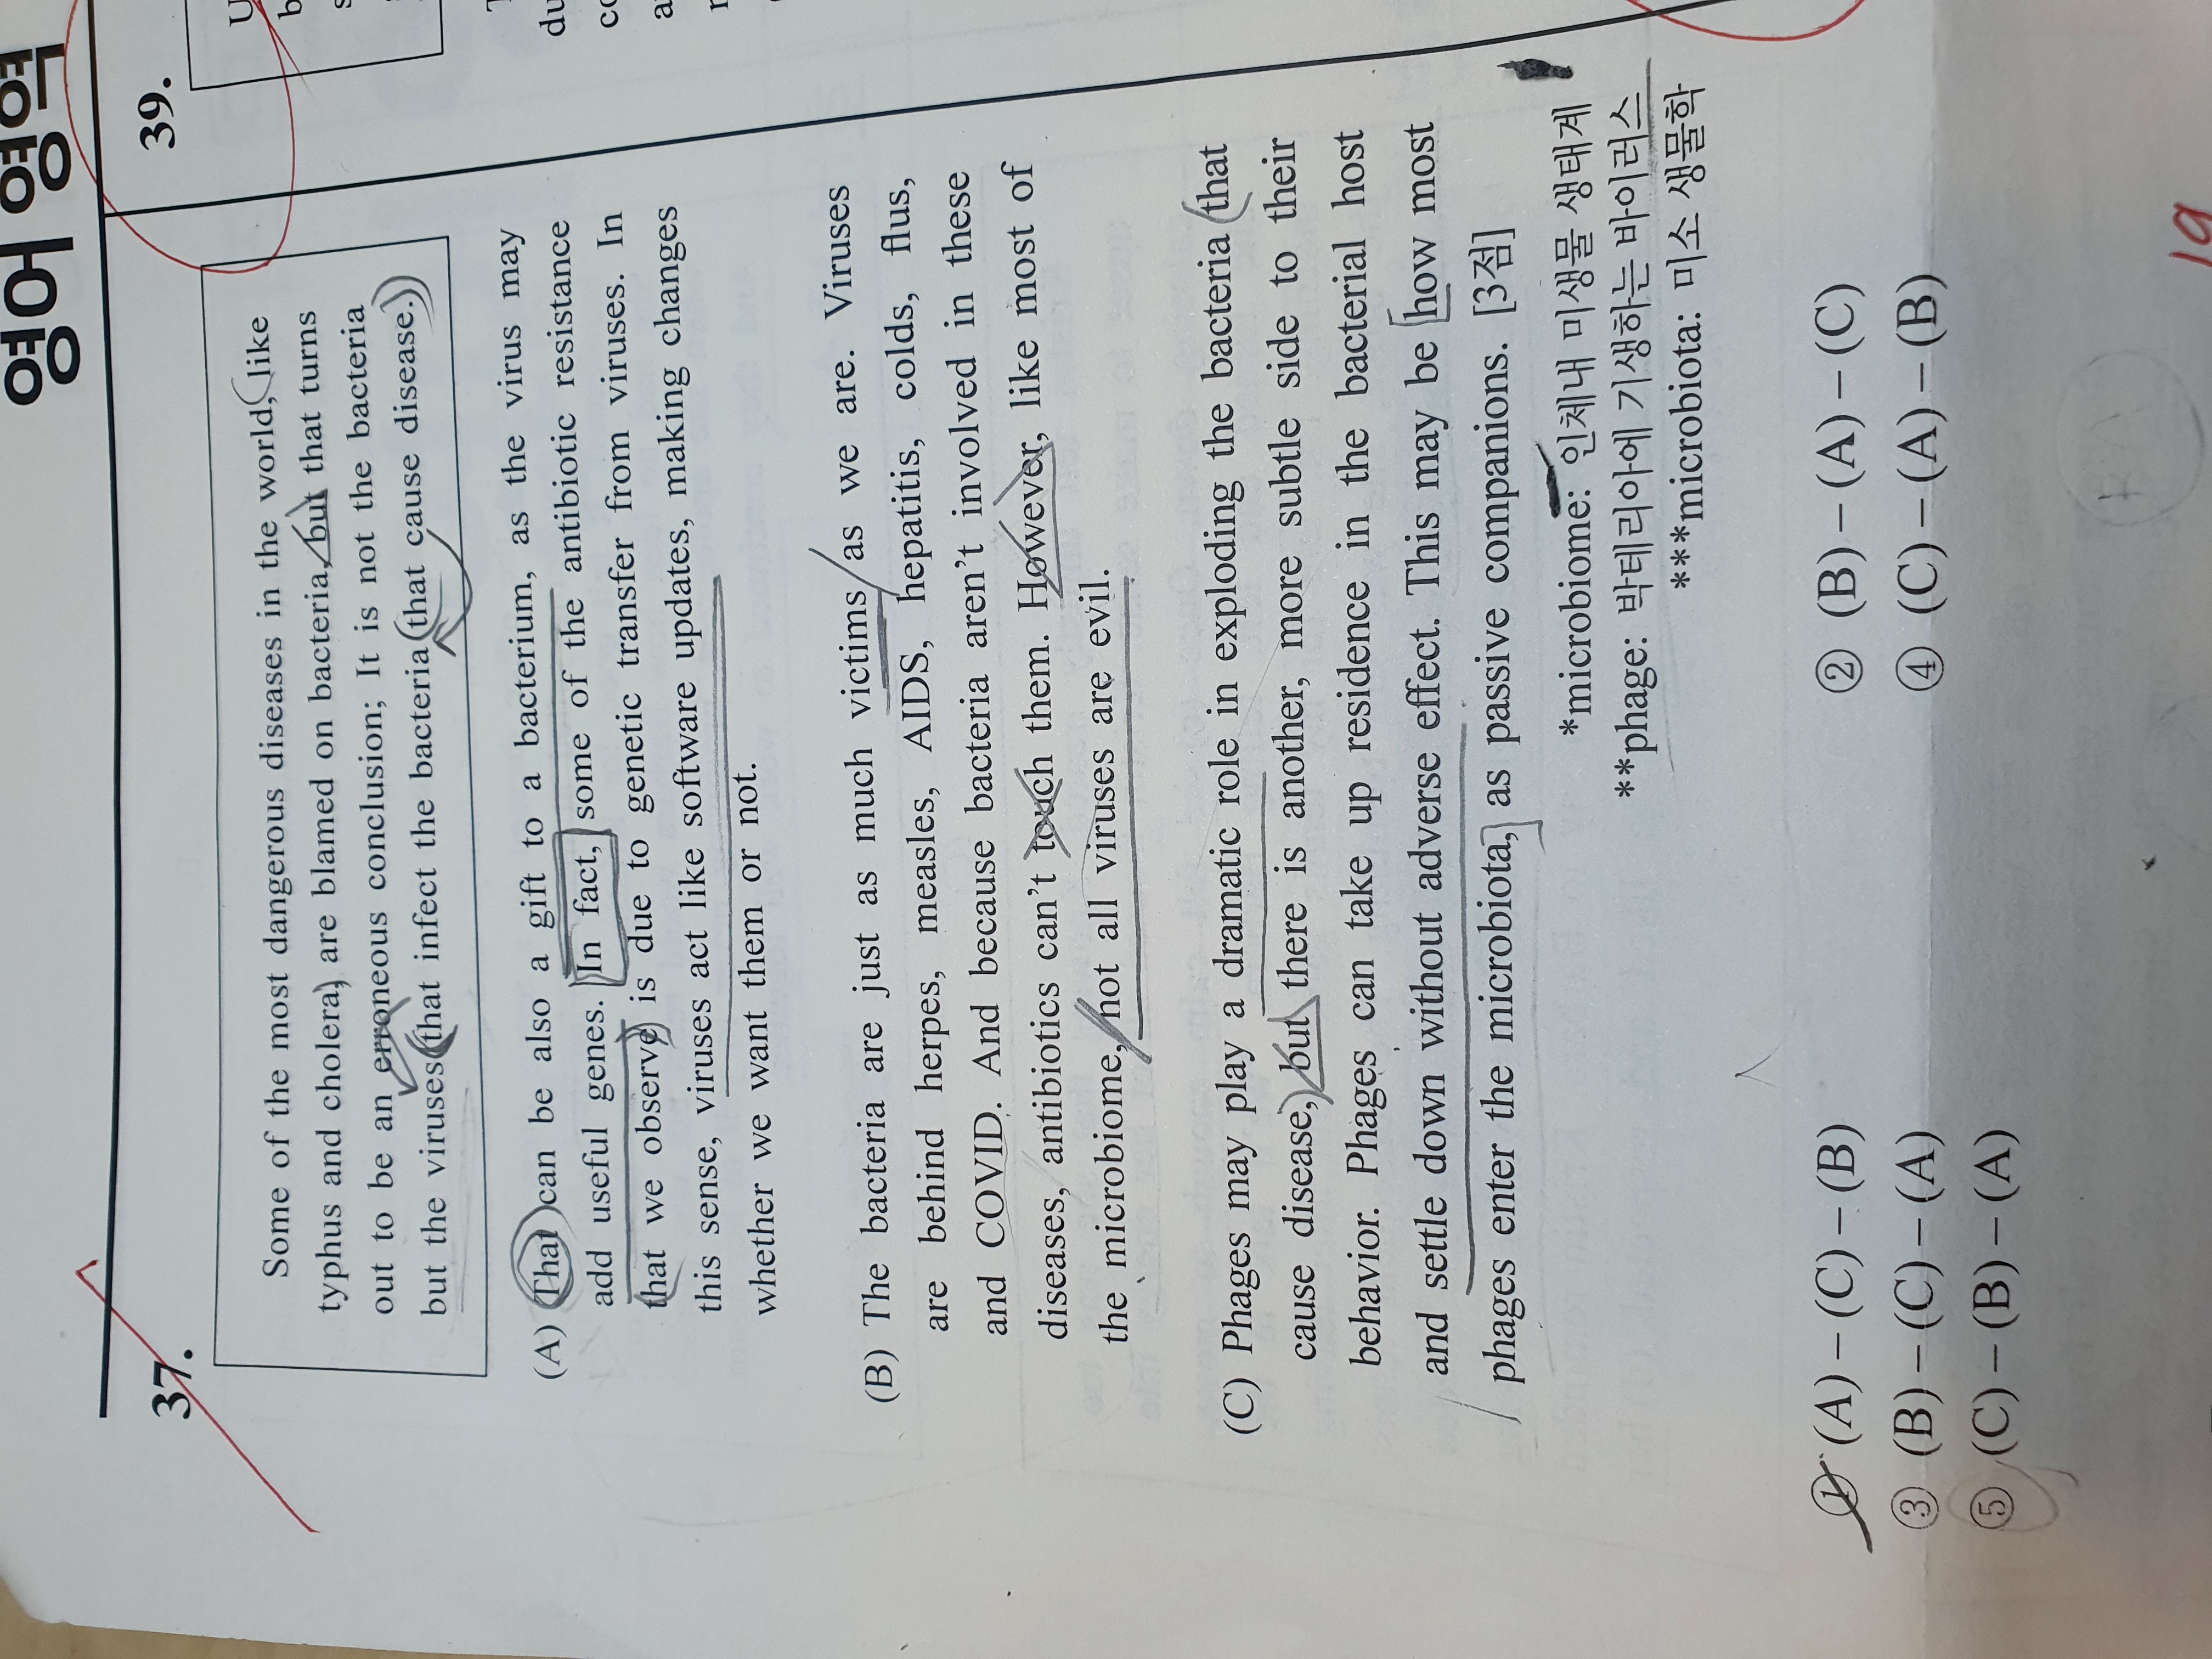 영어 영역
37.
Some of the most dangerous diseases in the world, like
typhus and cholera, are blamed on bacteria, but that turns
out to be an erroneous conclusion; It is not the bacteria
but the viruses that infect the bacteria that cause disease.
(A) That can be also a gift to a bacterium, as the virus may
add useful genes. In fact, some of the antibiotic resistance
that we observe is due to genetic transfer from viruses. In
this sense, viruses act like software updates, making changes
whether we want them or not.
(B) The bacteria are just as much victims as we are. Viruses
are behind herpes, measles, AIDS, hepatitis, colds, flus,
and COVID. And because bacteria aren't involved in these
diseases, antibiotics can't touch them. However, like most of
the microbiome, not all viruses are evil.
(C) Phages may play a dramatic role in exploding the bacteria that
cause disease, but there is another, more subtle side to their
behavior. Phages can take up residence in the bacterial host
and settle down without adverse effect. This may be how most
phages enter the microbiota, as passive companions. [3점]
*microbiome: 인체내 미생물 생태계
**phage: 박테리아에 기생하는 바이러스
***microbiota: 미소 생물학
① (A) – (C) – (B)
② (B) – (A) – (C)
③ (B) – (C) – (A)
④ (C) – (A) – (B)
⑤ (C) – (B) – (A)
39.
19